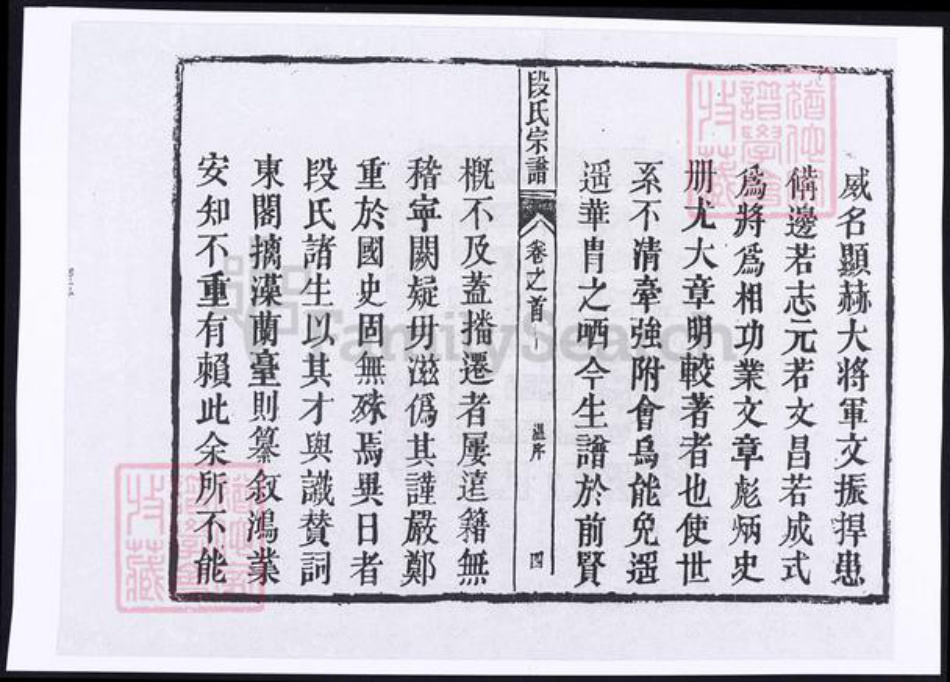 威名顯赫大將軍文振捍患
備邊若志元若文昌若成式
為將爲相功業文章彪炳史
册尤大章明較著者也使世
系不清牽強附會烏能免遥
遥華胄之哂今生譜於前賢
段氏宗譜 卷之首 溫序 四
概不及蓋播遷者屢遠籍無
稽寜闕疑毋滋僞其謹嚴鄭
重於國史固無殊焉異日者
段氏諸生以其才與識賛詞
東閣摛藻蘭臺則纂叙鴻業
安知不重有賴此余所不能
FamilySearch